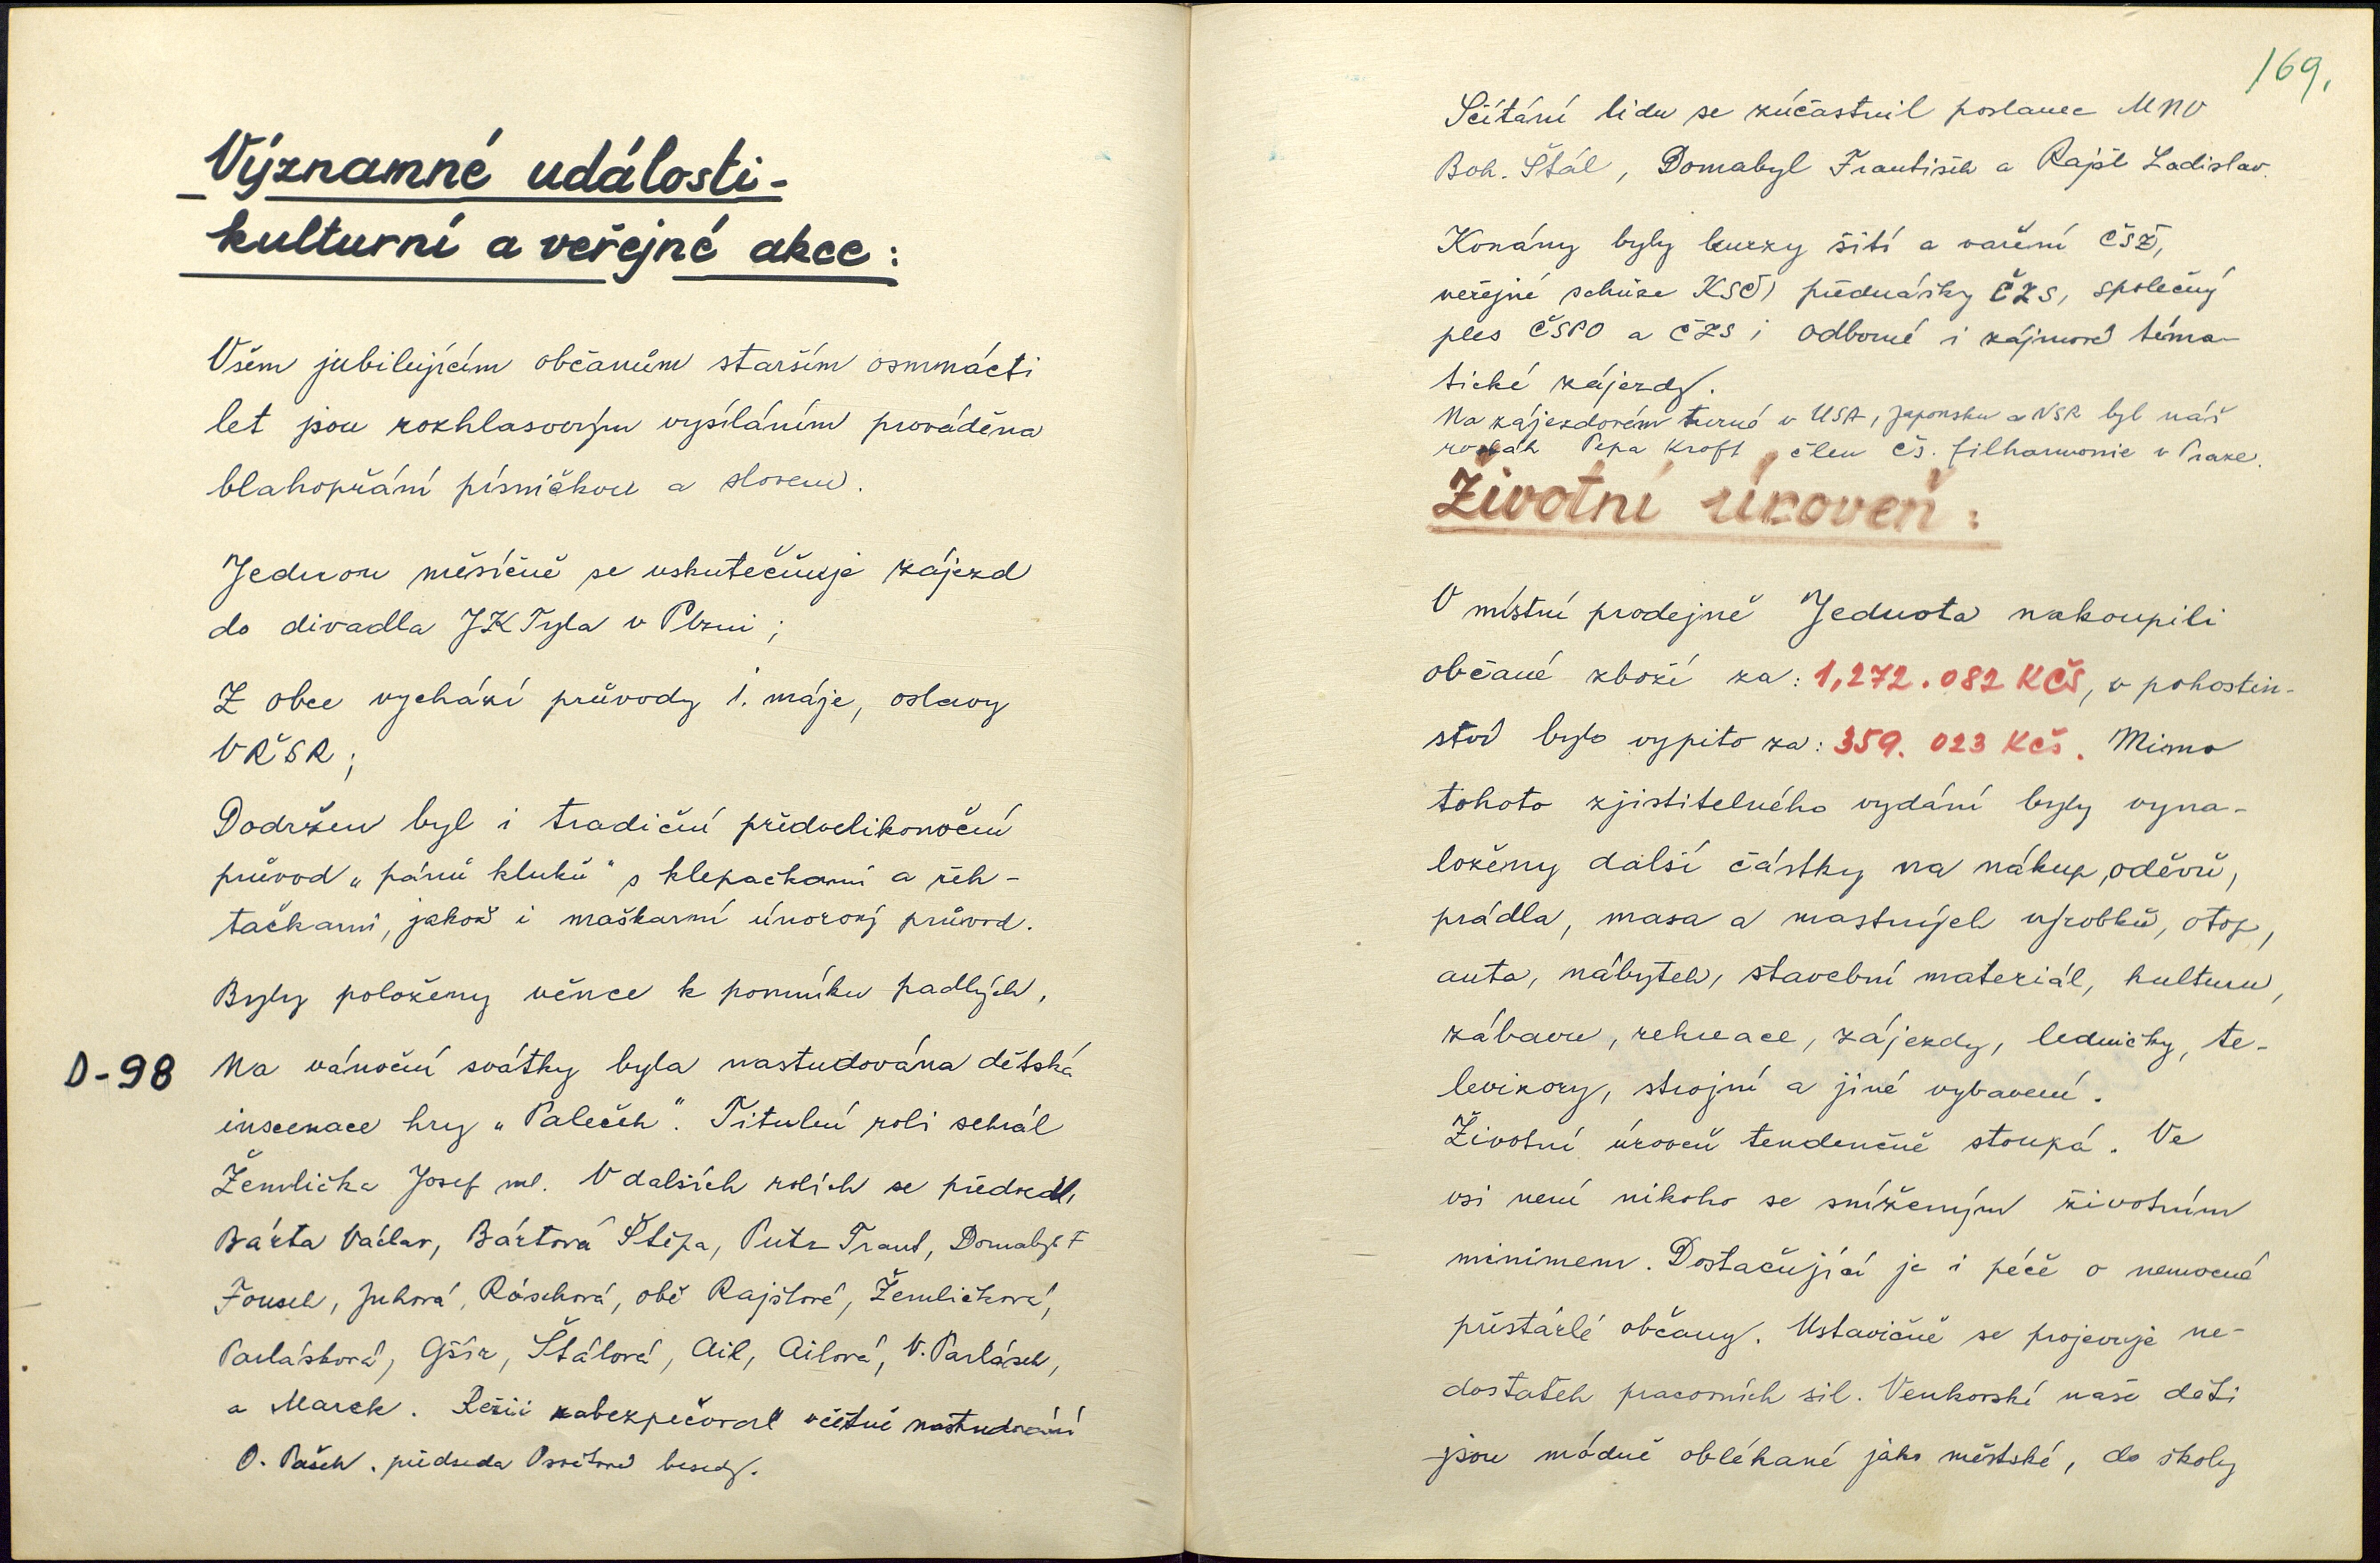 Významné události-
kulturní a veřejné akce:
Všem jubilujícím občanům starším osmnácti
let jsou rozhlasovým vysíláním prováděna
blahopřání písničkou a slovem.
Jednou měsíčně se uskutečňuje zájezd
do divadla JKTyla v Plzni;
Z obce vychází průvody 1. máje, oslavy
VŘSR;
Dodržen byl i tradiční předvelikonoční
průvod „pánů kluků" s klepačkami a řeh-
tačkami, jakož i maškarní únorový průvod.
Byly položeny věnce k pomníku padlých,
D-98
Na vánoční svátky byla nastudována dětská
inscenace hry „Paleček". Titulní roli sehrál
Žemlička Josef ml. V dalších rolích se předvedli
Bárta Václav, Bártová Štěpa, Putz Frant, Domabyl F
Fousek, Juhová, Röschová, obě Rajšlové, Žemličková,
Parlásková, Gšír, Štálová, Ail, Ailová, V. Parlásek,
a Marek. Režii zabezpečoval včetně nastudování
O. Pašek. předseda Osvětové besedy.
169.
Sčítání lidu se zúčastnil poslanec MNV
Boh. Štál, Domabyl František a Rajšl Ladislav.
Konány byly kurzy šití a vaření ČSŽ,
veřejné schůze KSČ, přednášky ČZS, společný
ples ČSPO a ČZS i odborné i zájmové téma-
tické zájezdy.
Na zájezdovém turné v USA, Japonsku a NSR byl náš
rodák Pepa Kroft, člen čs. filharmonie v Praze.
Životní úroveň:
V místní prodejně Jednota nakoupili
občané zboží za: 1,272.082 KČS, v pohostin-
ství bylo vypito za: 359. 023 Kčs. Mimo
tohoto zjistitelného vydání byly vyna-
loženy další částky na nákup oděvů,
prádla, masa a mastných výrobků, otop,
auta, nábytek, stavební materiál, kulturu,
zábavu, rekreace, zájezdy, ledničky, te-
levizory, strojní a jiné vybavení.
Životní úroveň tendenčně stoupá. Ve
vsi není nikoho se sníženým životním
minimem. Dostačující je i péče o nemocné
přestárlé občany. Ustavičně se projevuje ne-
dostatek pracovních sil. Venkovské naše děti
jsou módně oblékané jako městské, do školy